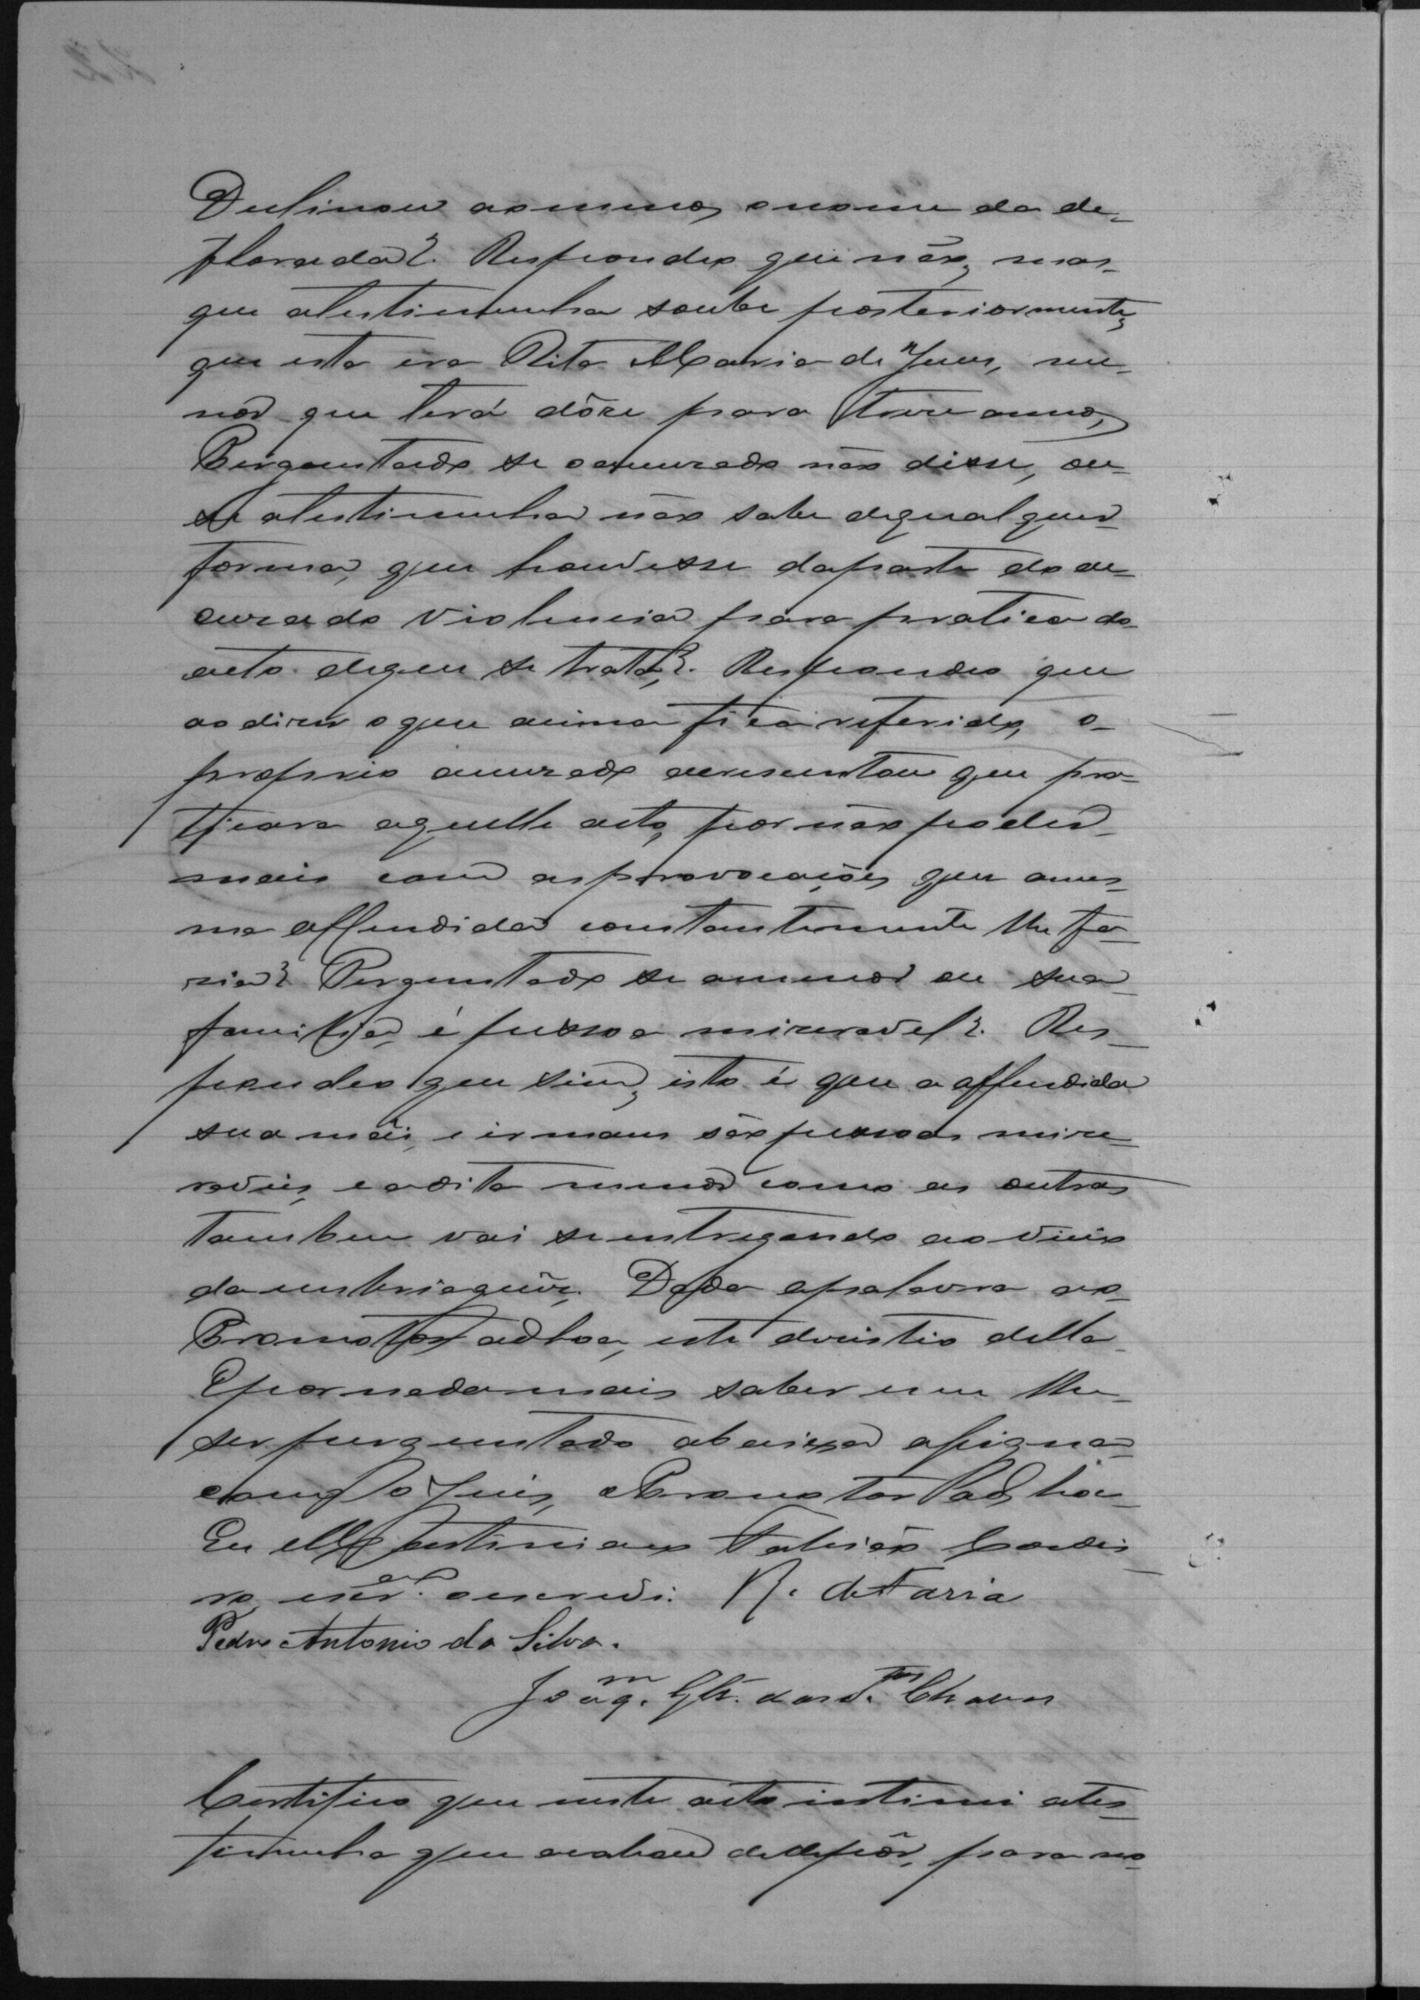 Declinou ao menos o nome da de-
florada? Respondeo que não, mas
que a testimunha soube posteriormente,
que esta era Rita Maria de Jesus, me-
nor que terá dôze para treze annos,
Perguntado se o accuzado não disse, ou
se a testimunha não sabe de qual quer
forma, que houvesse da parte do ac-
cuzado violencia para pratica do
acto de que se trata,? Respondeo que
ao dizer o que acima fica referido, o
proprio accuzado accrescentou que pra-
ticara aquelle acto, por não poder
mais com as provocações que a mes-
ma offendida constantemente lhe fa-
zia? Perguntado se a menor ou sua
familia, é pessoa mizeravel?. Res-
pondeo que sim, isto é que a offendida
sua mãi, e irmans são pessoas mize-
raveis, e a dita menor como as outras
tambem vai se entregando ao vicio
da embriaguêz. Dada a palavra ao
Promotor ad hoc, este desistio della
E por nada mais saber nem lhe
ser perguntado abaixo assigna
com o Juis, e Promotor ad hoc
Eu Tabião Cordei
ro, escr.am o escrevi. R. de Faria
Pedro Antonio da Silva.
Joaq.m Glz. dos S.tos Chaves
Certifico que neste acto intimei a tes-
timunha que acabou de depôr, para no